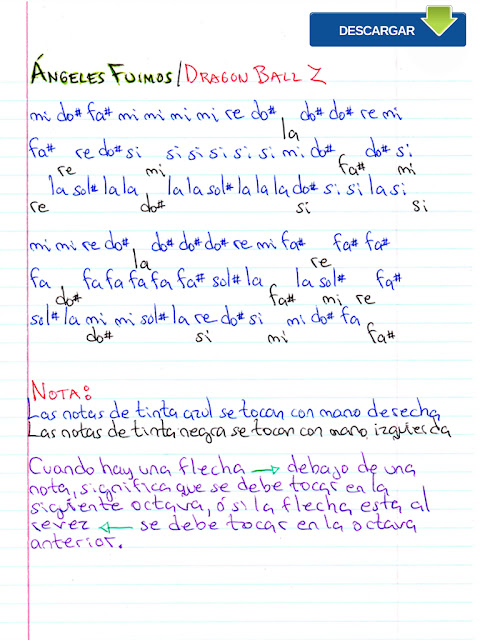 DESCARGAR
ÁNGELES FUIMOS/DRAGON BALL Z
mi do# fa# mi mi mi mi re do# do# do# re mi
la
fa# re do# si si si si si si mi do# do# si
re mi fa# mi
la sol# la la la la sol# la la la do# si si la si
re do# si si
mi mi re do# do# do# do# re mi fa# fa# fa#
la re
fa fa fa fa fa fa# sol# la la sol# fa#
do# fa# mi re
sol# la mi mi sol# la re do# si mi do# fa
do# si mi fa#
NOTA:
Las notas de tinta azul se tocan con mano derecha
Las notas de tinta negra se tocan con mano izquierda
Cuando hay una flecha → debajo de una
nota, significa que se debe tocar en la
siguiente octava, ó si la flecha esta al
revez ← se debe tocar en la octava
anterior.